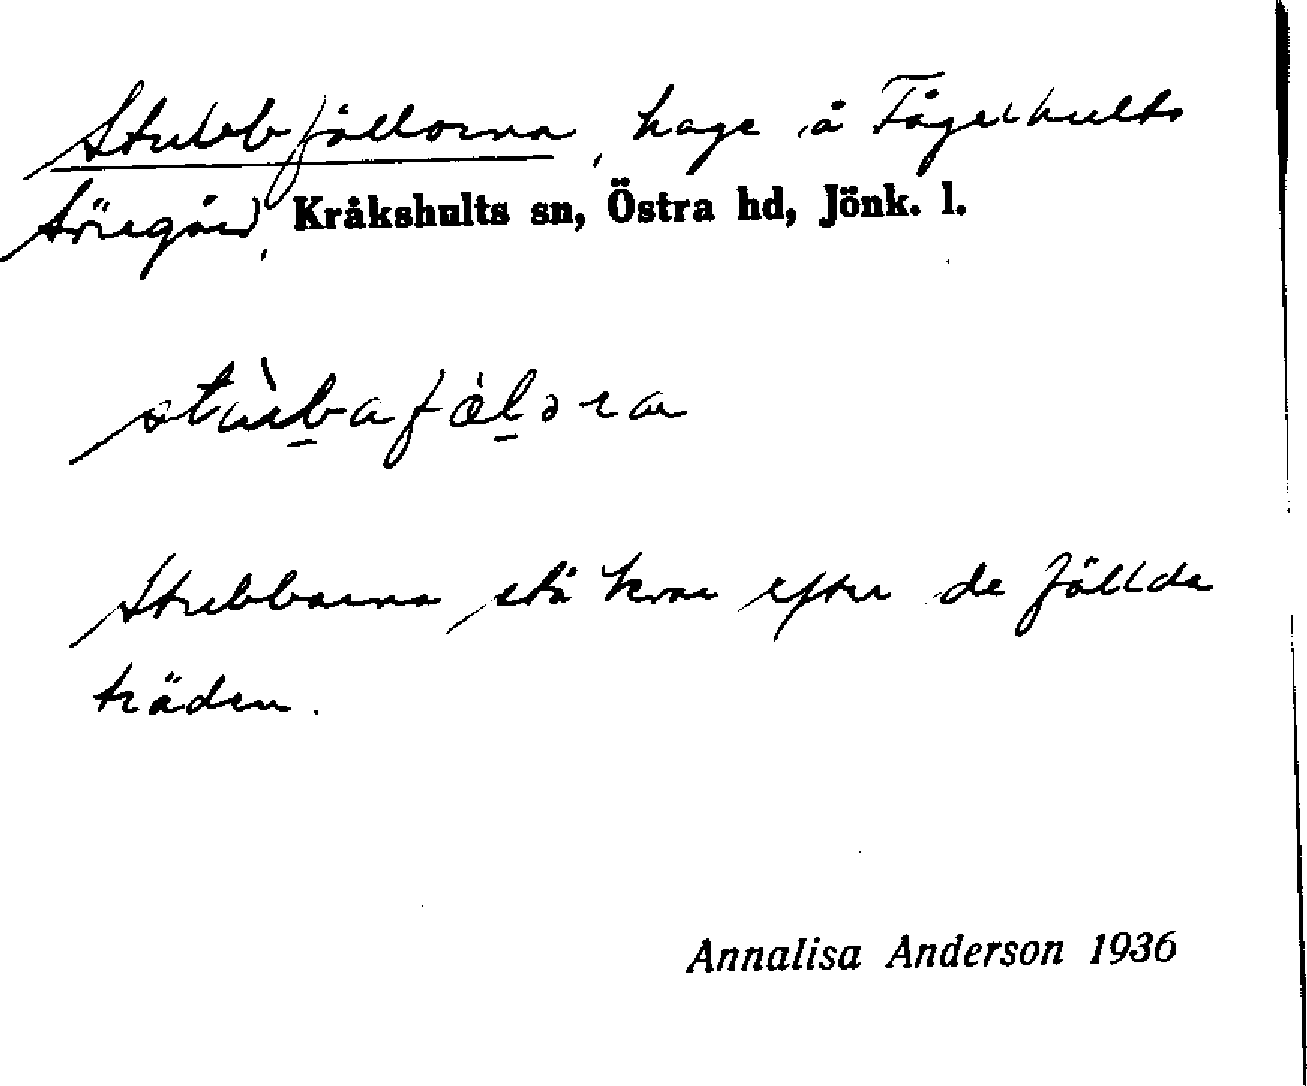 Stubbfällorna, hage å Fågelhults
Söregård, Kråkshults sn, Östra hd, Jönk. l.
Stubbarna stå kvar efter de fällda
träden.
Annalisa Anderson 1936